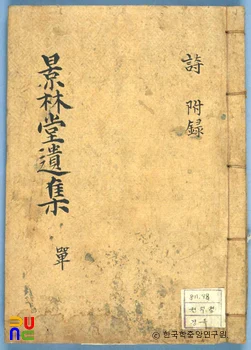 詩 附録
景林堂遺集 單
811.98
한국학중앙연구원